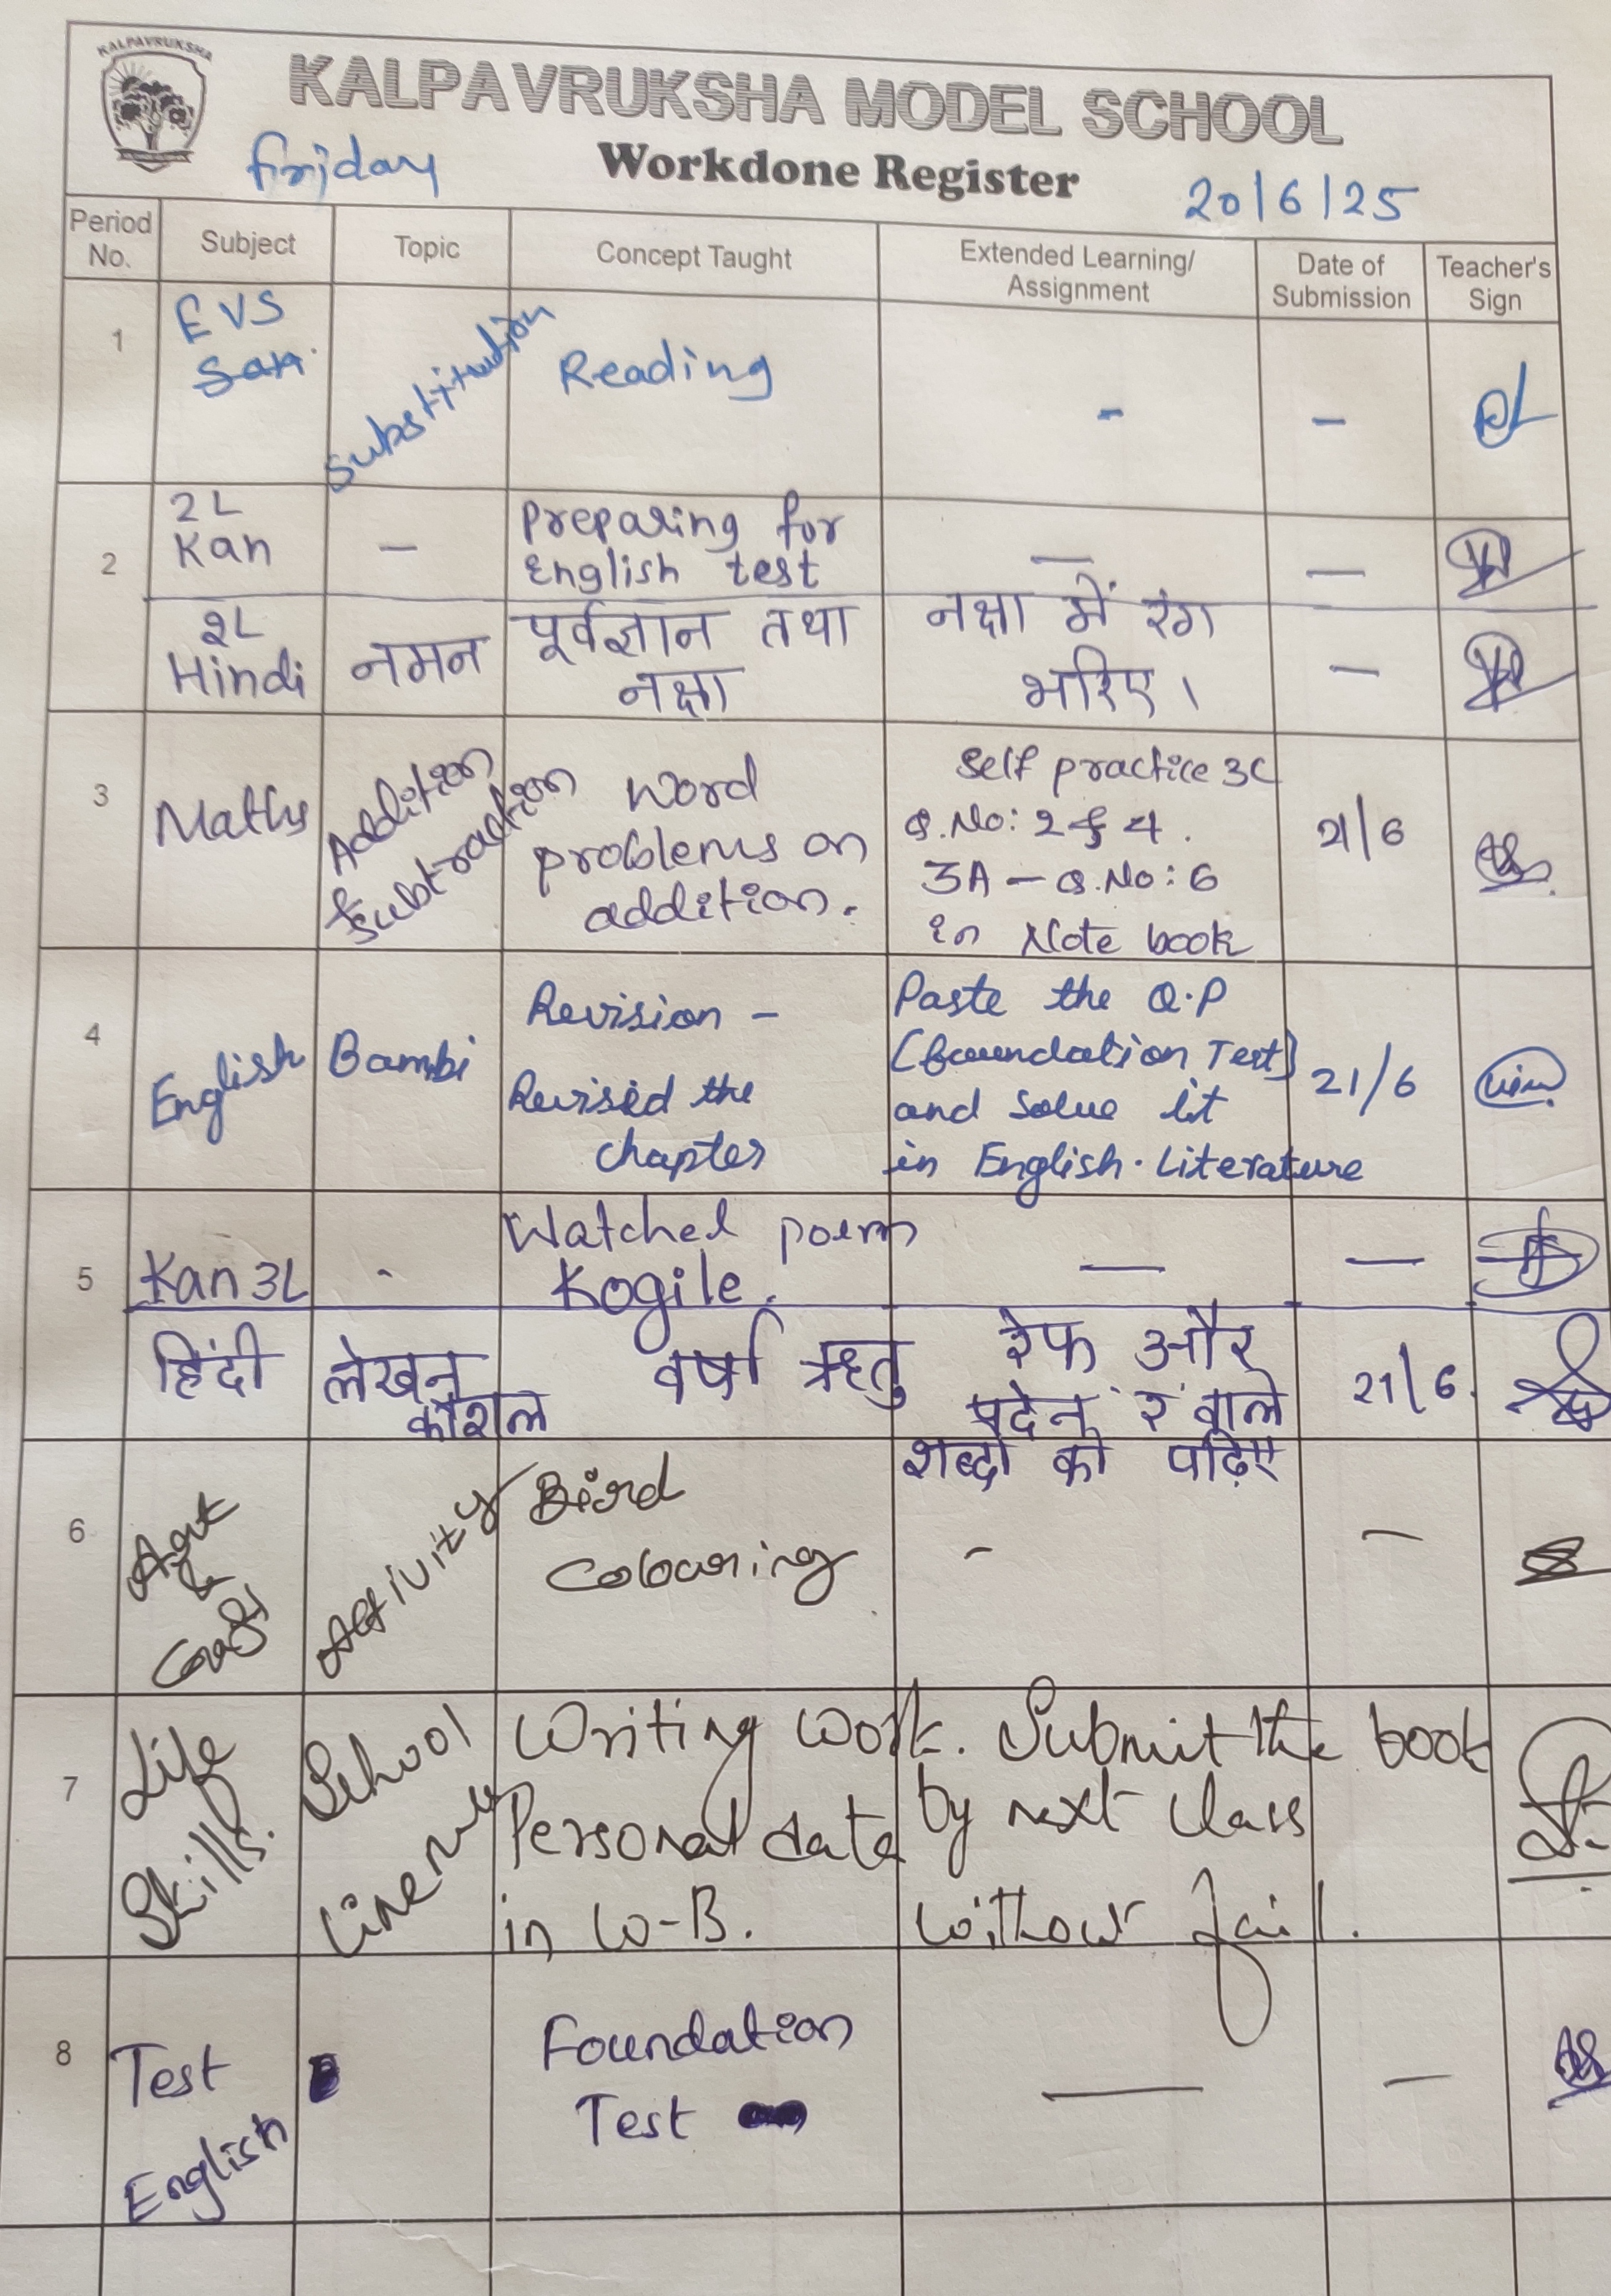 KALPAVRUKSHA
KALPAVRUKSHA MODEL SCHOOL
Friday
Workdone Register
20/6/25
Period No.
Subject
Topic
Concept Taught
Extended Learning/
Assignment
Date of
Submission
Teacher's
Sign
1
EVS
Substitution
Reading
-
-
2
2L
Kan
-
Preparing for
English test
-
-
2L
Hindi
नमन
पूर्वज्ञान तथा
नक्षा
नक्षा में रंग
भरिए।
-
3
Maths
Addition
& Subtraction
Word
problems on
addition.
Self practice 3C
Q.No: 2 & 4.
3A - Q.No: 6
in Note book
21/6
4
English
Bambi
Revision -
Revised the
chapter
Paste the Q.P
(foundation Test)
and solve it
in English. Literature
21/6
5
Kan 3L
-
Watched poem
Kogile.
-
-
हिंदी
लेखन
कौशल
वर्षा ऋतु
रेफ और
पदेन 'र' वाले
शब्दों को पढ़िए
21/6.
6
Art
&
Craft
Activity
Bird
Colouring
-
-
7
Life
Skills.
School
Writing work.
Personal data
in W-B.
Submit the book
by next class
without fail.
8
Test
English
Foundation
Test
-
-